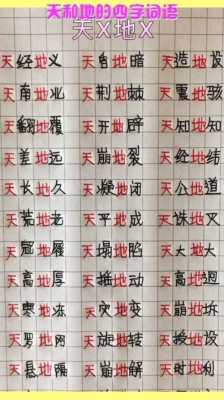 天和地的四字词语
天X地X
天经地义 天昏地暗 天造地设
天南地北 天荆地棘 天震地骇
天翻地覆 天开地辟 天知地知
天差地远 天崩地裂 天经地纬
天长地久 天凝地闭 天公地道
天荒地老 天平地成 天诛地灭
天冠地履 天塌地陷 天大地大
天高地厚 天摇地动 天高地迥
天寒地冻 天灾地变 天崩地坼
天罗地网 天旋地转
天悬地隔 天崩地解 天时地利